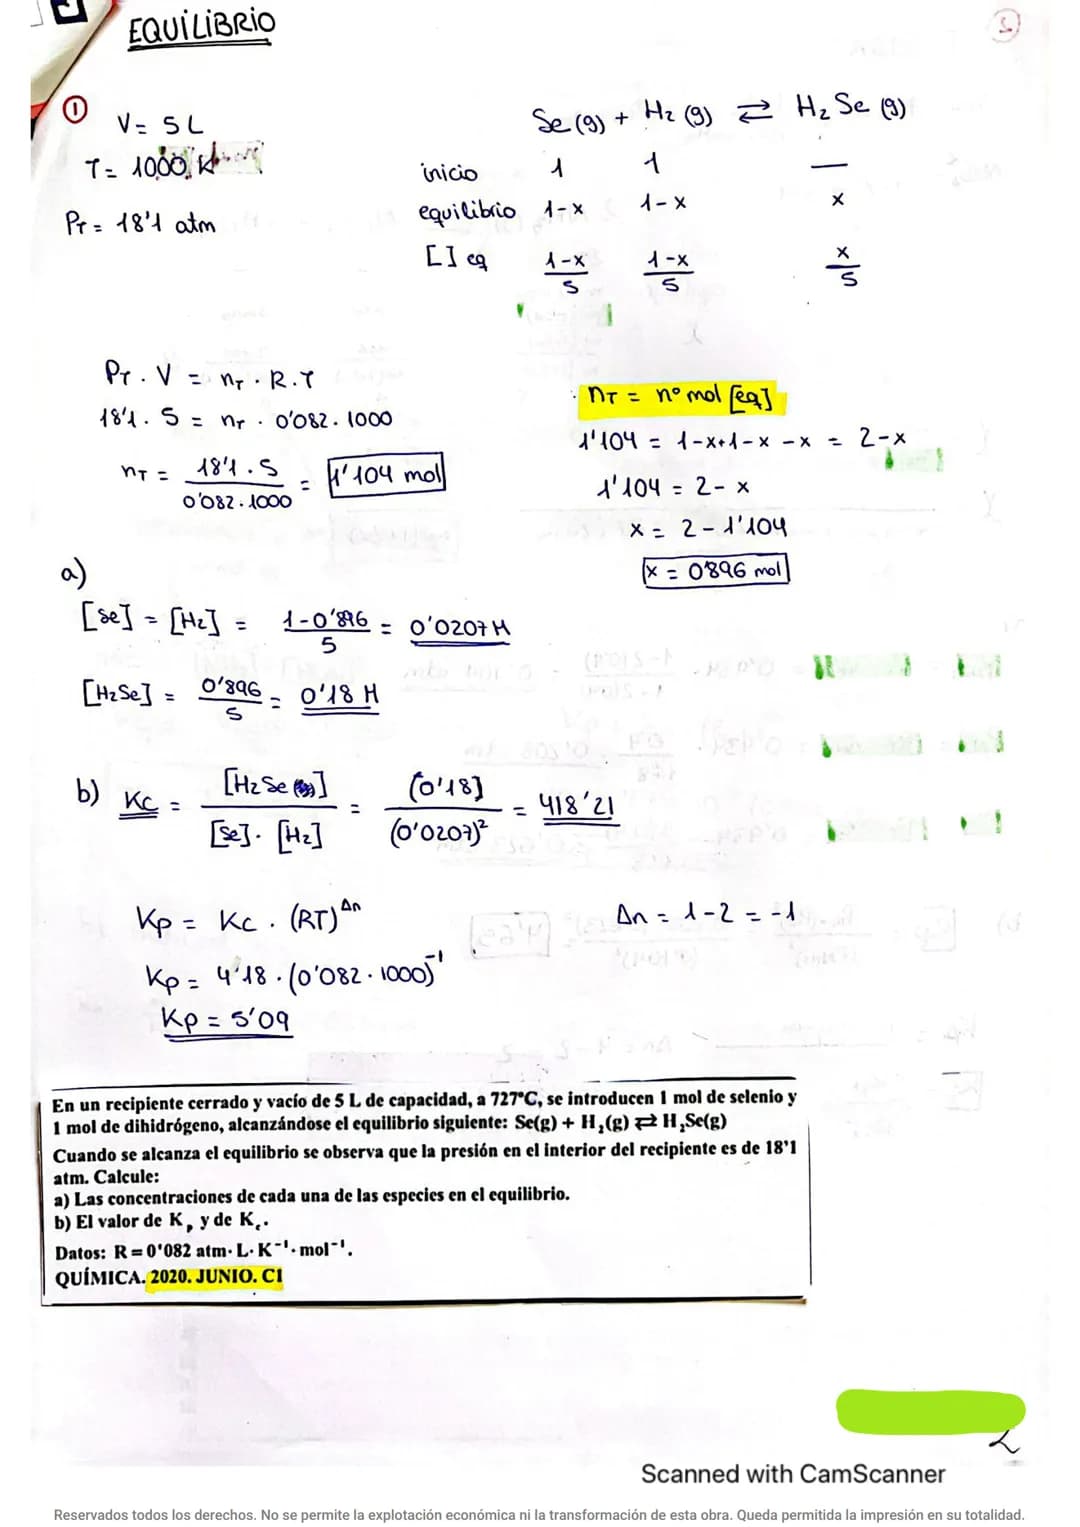 EQUILIBRIO
①
V = 5 L
T = 1000 K
PT = 18'1 atm
Se (g) + H2 (g) ⇄ H2 Se (g)
inicio 1 1 —
equilibrio 1-x 1-x x
[ ] eq (1-x)/5 (1-x)/5 x/5
PT . V = nT . R.T
18'1 . 5 = nT . 0'082 . 1000
nT = (18'1 . 5)/(0'082 . 1000) = 1'104 mol
nT = nº mol [eq]
1'104 = 1-x+1-x -x = 2-x
1'104 = 2- x
x = 2 - 1'104
x = 0'896 mol
a)
[Se] = [H2] = (1-0'896)/5 = 0'0207 M
[H2Se] = 0'896/5 = 0'18 M
b) Kc = [H2Se]/([Se] . [H2]) = (0'18)/(0'0207)² = 418'21
Kp = Kc . (RT)^Δn
Δn = 1-2 = -1
Kp = 4'18 . (0'082 . 1000)⁻¹
Kp = 5'09
En un recipiente cerrado y vacío de 5 L de capacidad, a 727ºC, se introducen 1 mol de selenio y
1 mol de dihidrógeno, alcanzándose el equilibrio siguiente: Se(g) + H₂(g) ⇄ H₂Se(g)
Cuando se alcanza el equilibrio se observa que la presión en el interior del recipiente es de 18'1
atm. Calcule:
a) Las concentraciones de cada una de las especies en el equilibrio.
b) El valor de Kp y de Kc.
Datos: R = 0'082 atm· L· K⁻¹· mol⁻¹.
QUÍMICA. 2020. JUNIO. C1
Scanned with CamScanner
Reservados todos los derechos. No se permite la explotación económica ni la transformación de esta obra. Queda permitida la impresión en su totalidad.